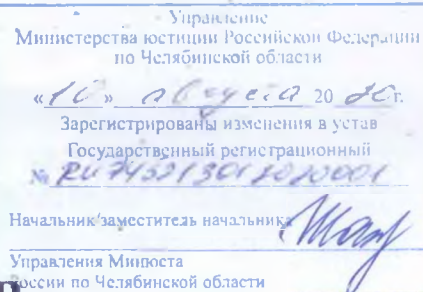 Управление
Министерства юстиции Российской Федерации
по Челябинской области
«10» августа 2020 г.
Зарегистрированы изменения в устав
Государственный регистрационный
№ RU745213012020001
Начальник/заместитель начальника
Управления Минюста
России по Челябинской области